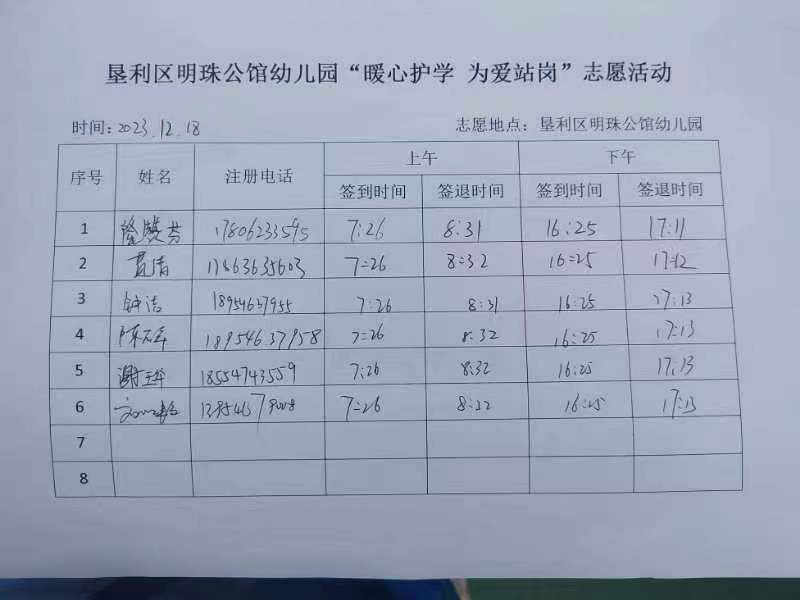 垦利区明珠公馆幼儿园“暖心护学 为爱站岗”志愿活动
时间：2023.12.18 志愿地点：垦利区明珠公馆幼儿园
序号 姓名 注册电话 上午 下午
签到时间 签退时间 签到时间 签退时间
1 17806233595 7:26 8:31 16:25 17:11
2 17863635603 7:26 8:32 16:25 17:12
3 18954637955 7:26 8:31 16:25 17:13
4 18954637958 7:26 8:32 16:25 17:13
5 18554743559 7:26 8:32 16:25 17:13
6 7:26 8:32 16:25 17:13
7
8